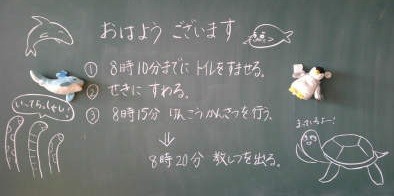 おはよう ございます
① 8時10分までに トイレをすませる。
② せきに すわる。
③ 8時15分 けんこうかんさつを行う。
⇓
8時20分 教しつを出る。
いってらっしゃい
まっているよー!